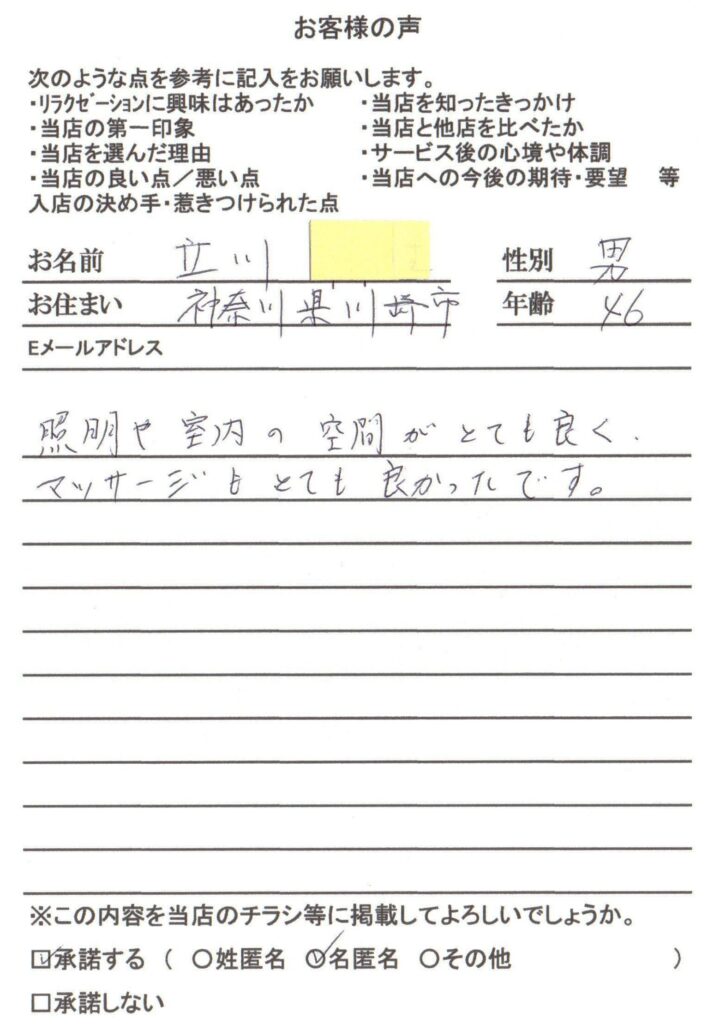 お客様の声
次のような点を参考に記入をお願いします。
・ﾘﾗｸｾﾞｰｼｮﾝに興味はあったか ・当店を知ったきっかけ
・当店の第一印象 ・当店と他店を比べたか
・当店を選んだ理由 ・サービス後の心境や体調
・当店の良い点／悪い点 ・当店への今後の期待・要望 等
入店の決め手・惹きつけられた点
お名前 立川 性別 男
お住まい 神奈川県川崎市 年齢 46
Eメールアドレス
照明や室内の空間がとても良く、
マッサージもとても良かったです。
※この内容を当店のチラシ等に掲載してよろしいでしょうか。
☑承諾する ( ○姓匿名 ○名匿名 ○その他 )
□承諾しない